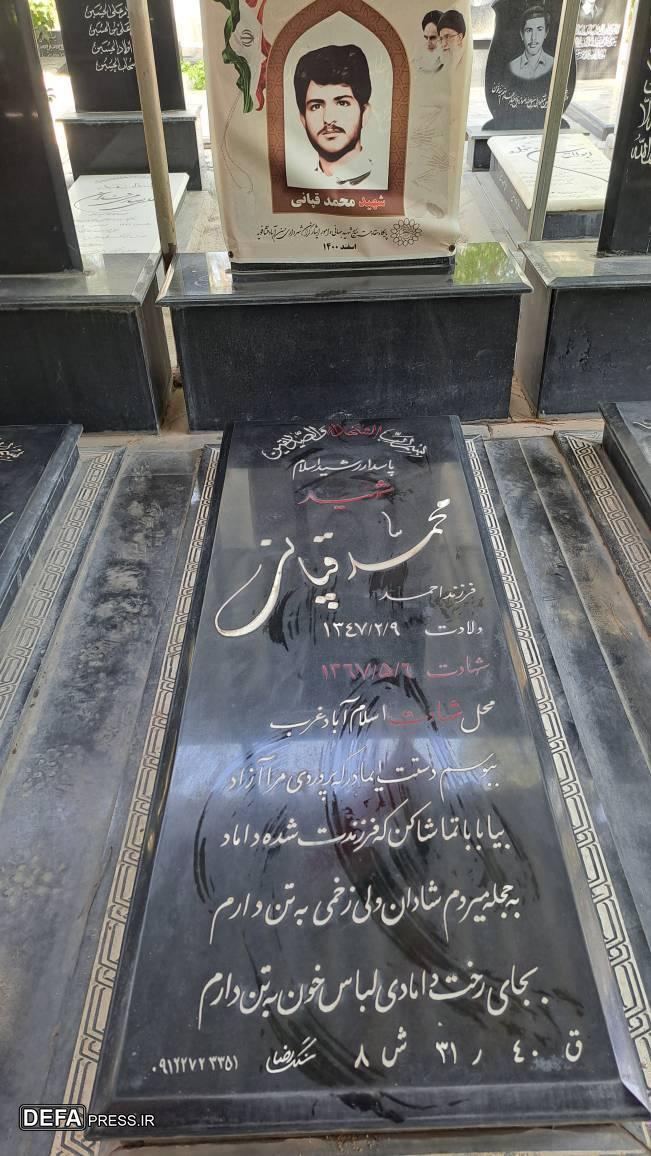 شهید محمد قپانی
اسفند ۱۴۰۰
بسم رب الشهداء والصدیقین
پاسدار رشید اسلام
شهید
محمد قپانی
فرزند احمد
ولادت ۱۳۴۷/۲/۹
شهادت ۱۳۶۷/۵/۶
محل شهادت اسلام آباد غرب
ببوسم دستت ایمادر که پروردی مرا آزاد
بیا بابا تماشا کن که فرزندت شده داماد
به حجله میروم شادان ولی زخمی به تن دارم
بجای رخت دامادی لباس خون به تن دارم
ق ۴۰ ر ۳۱ ش ۸
سنگ رضا ۰۹۱۲۲۷۲۳۳۵۱
DEFAPRESS.IR